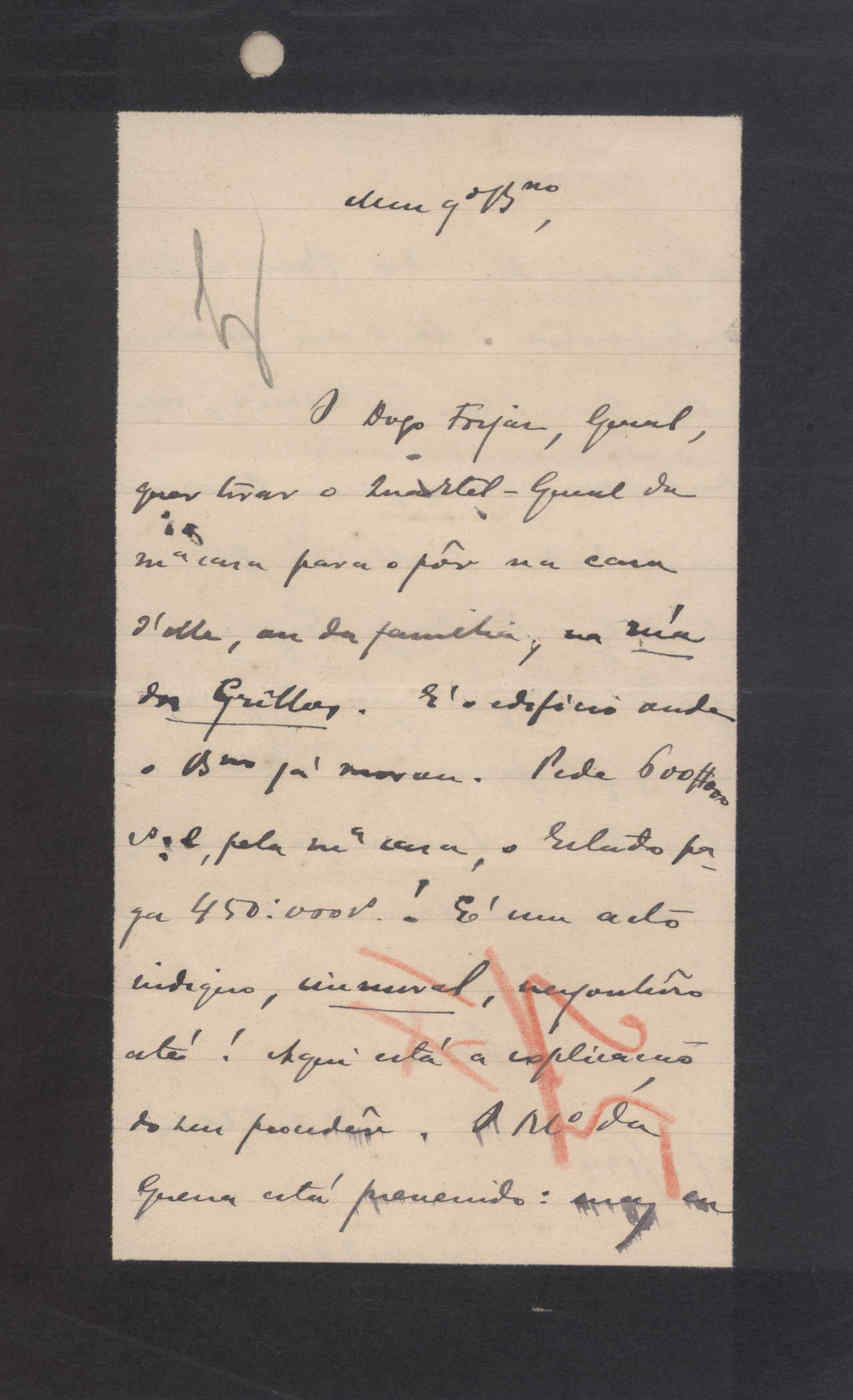 Meu q.do B.no,
O Dugo Forjaz, General,
quer tirar o Quartel-General da
m.a casa para o pôr na casa
d'elle, ou da familia, na rúa
dos Grillos. É o edificio onde
o B.no já morou. Pede 600$000
e, pela m.a casa, o Estado pa-
ga 450:000 ! É um acto
indigno, immoral, vergonhôso
até ! Aqui está a explicação
do seu procedêr. O M.o da
Guerra está prevenido: mas eu